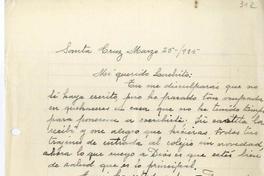 312
Santa Cruz Marzo 25-/935
Mi querido Luchito:
Tu me disculparás que no
te haya escrito, pero he pasado tan ocupada
en quehaceres de casa que no he tenido tiempo
para ponerme a escribirte. Tu cartita la
recibí y me alegro que hicieras todos tus
de entrada al colegio sin novedad,
ahora lo que ruego a Dios es que estés bien
de salud que es lo principal.